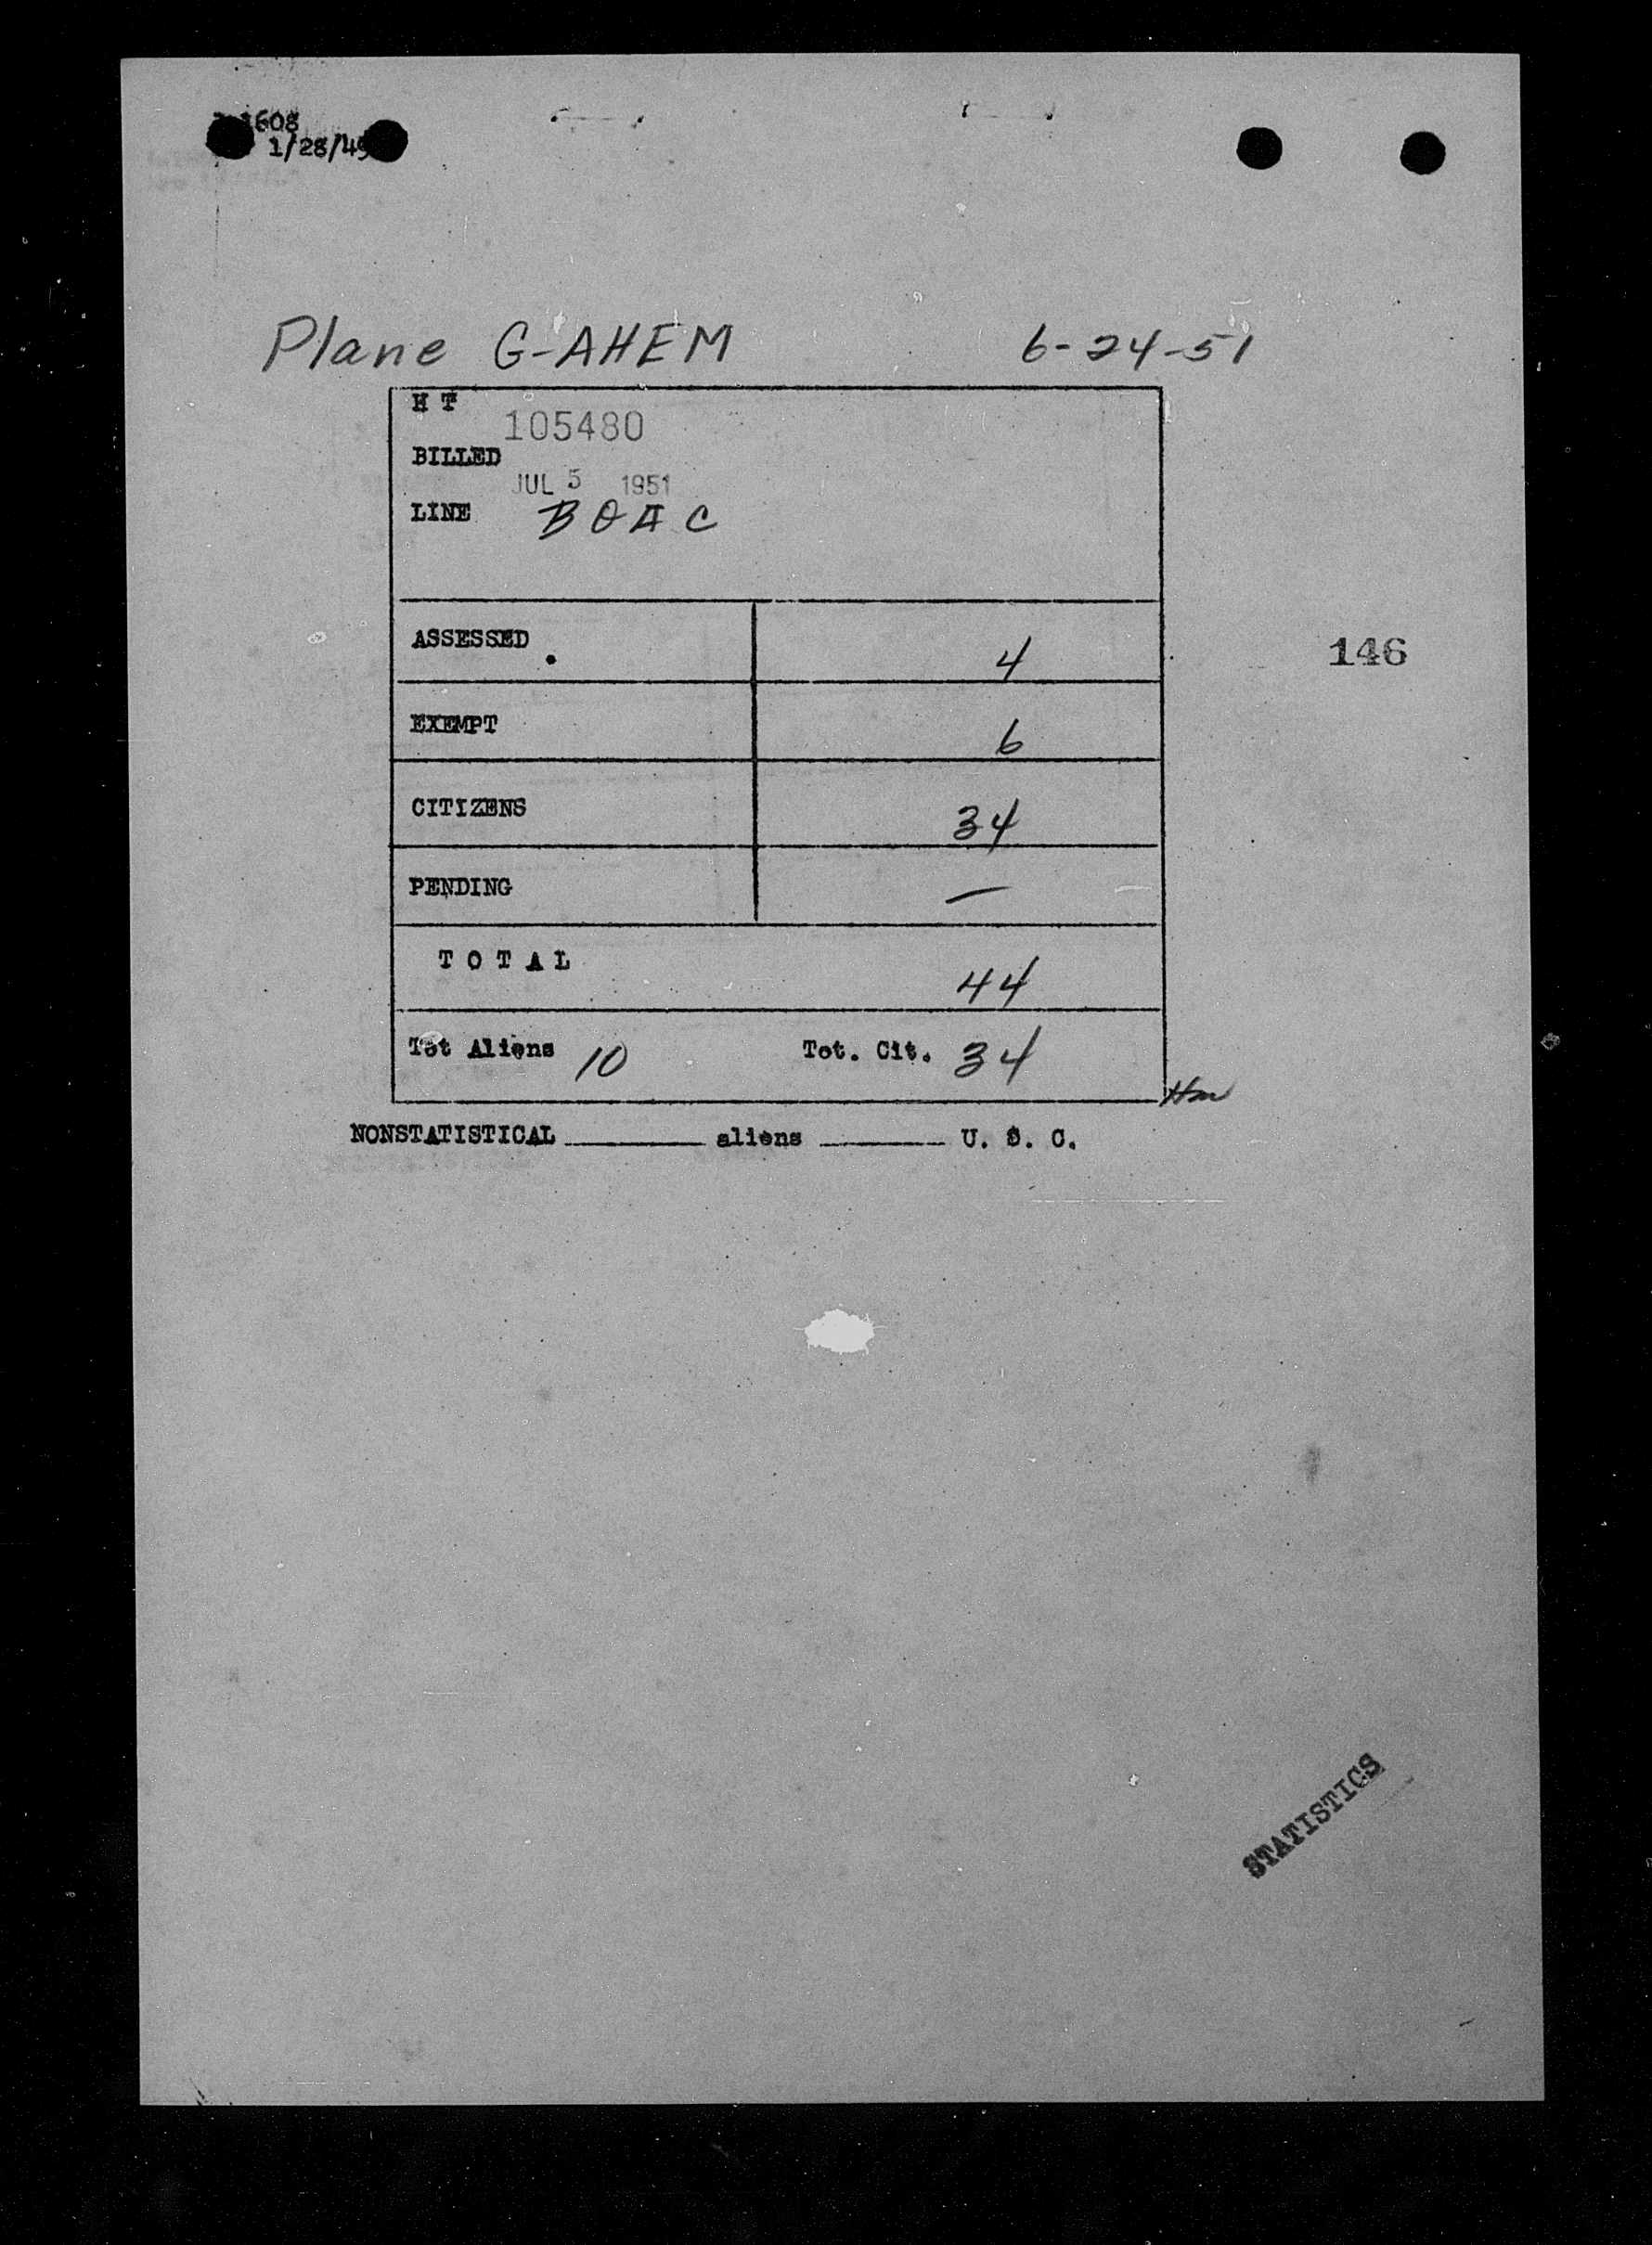 1608
1/28/49
Plane G-AHEM 6-24-51
H T 105480
BILLED JUL 5 1951
LINE BOAC
ASSESSED 4
146
EXEMPT 6
CITIZENS 34
PENDING —
TOTAL 44
Tot Aliens 10 Tot. Cit. 34
NONSTATISTICAL ______ aliens ______ U. S. C.
STATISTICS